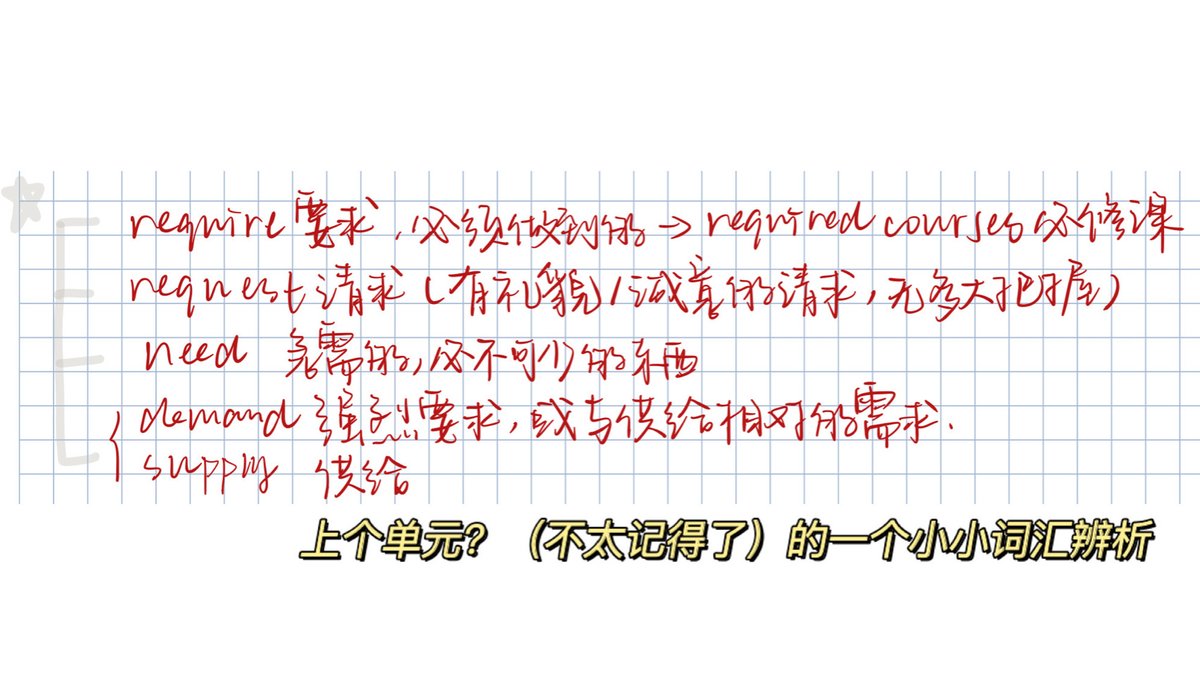 require 要求,必须做到的→required courses 必修课
request 请求(有礼貌/诚意的请求,无多大把握)
need 急需的,必不可少的东西
demand 强烈要求,或与供给相对的需求.
supply 供给
上个单元?(不太记得了)的一个小小词汇辨析